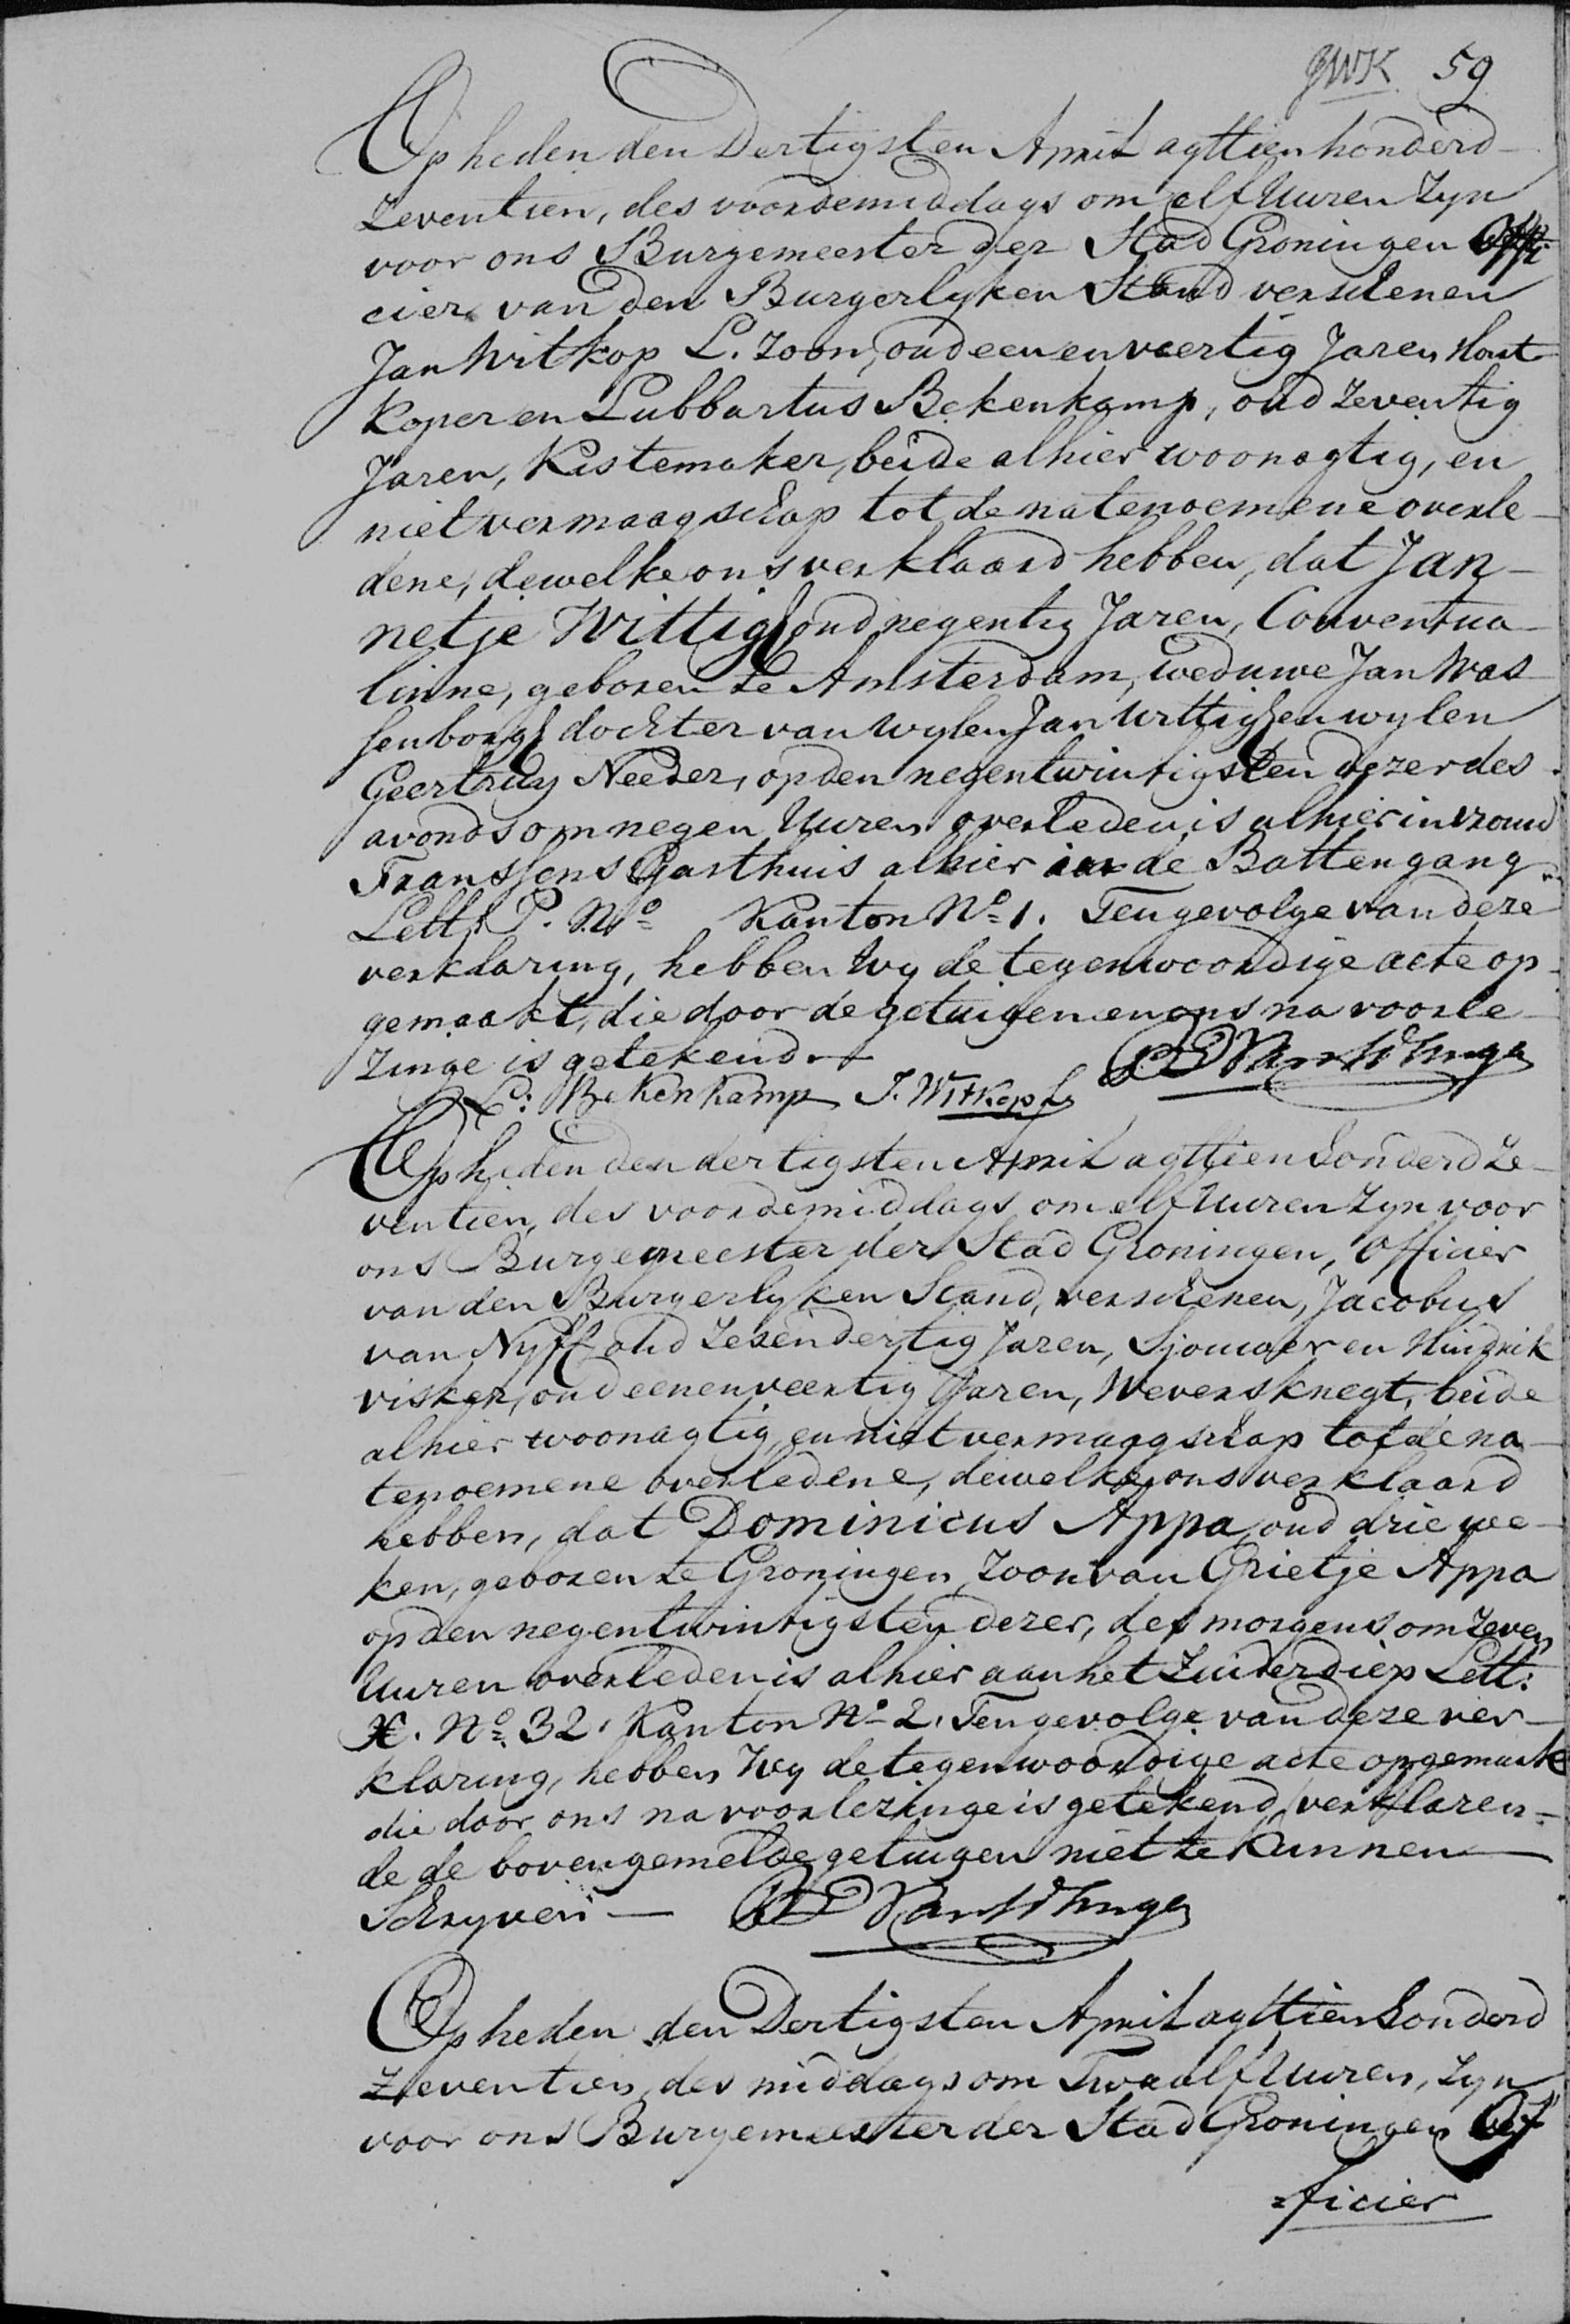 GWK 59
Op heden den Dertigsten April agttienhonderd-
Zeventien, des voordemiddags om elf Uuren Zyn
voor ons Burgemeester der Stad Groningen Offi
cier van den Burgerlyken Stand verschenen
Jan Witkop L. Zoon, oud eenenveertig Jaren Hout
koper en Lubbartus Bekenkamp, oud Zeventig
Jaren, Kistemaker, beide alhier woonagtig, en
niet vermaagschap tot de natenoemene overle-
dene, dewelke ons verklaard hebben, dat Jan-
netje Wittig, oud negentig Jaren, Conventua-
linne, geboren te Amsterdam, weduwe Jan Was
senborg, dochter van wylen Jan Wittig en wylen
Geertruy Needer, op den negentwintigsten dezer des
avonds om negen Uuren overleden is alhier in vrouw
Franssens Gasthuis alhier in de Battengang
Lett. P. No= Kanton No= 1. Tengevolge van deze
verklaring, hebben Wy de tegenwoordige acte op-
gemaakt, die door de getuigen en ons na voorle-
Zinge is getekend.—
L: Bekenkamp J. Witkop Lz
Op heden den dertigsten April agttienhonderd Ze-
ventien, des voordemiddags om elf Uuren Zyn voor
ons Burgemeester der Stad Groningen, Officier
van den Burgerlyken Stand, verschenen, Jacobus
van Nyff oud Zesendertig Jaren, Sjouwer en Hindrik
visker, oud eenenveertig Jaren, Weversknegt, beide
alhier woonagtig, en niet vermaagschap tot de na-
tenoemene overledene, dewelke ons verklaard
hebben, dat Dominicus Appa, oud drie we-
ken, geboren te Groningen, Zoon van Grietje Appa
op den negentwintigsten dezer, des morgens om Zeven
Uuren overleden is alhier aan het Zuiderdiep Lett:
X. No= 32. Kanton No= 2. Tengevolge van deze ver-
klaring, hebben Wy de tegenwoordige acte opgemaakt
die door ons na voorlezinge is getekend, verklaren-
de de bovengemelde getuigen niet te kunnen—
Schryven—
Op heden den Dertigsten April agttienhonderd
Zeventien, des middags om Twaalf Uuren, Zyn
voor ons Burgemeester der Stad Groningen Of
ficier